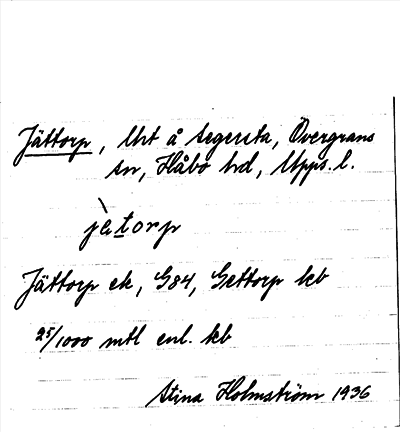 Jättorp, lht å Segersta, Övergrans
sn, Håbo hd, Upps. l.
jètorp
Jättorp ek, G84, Gettorp kb
25/1000 mtl enl. kb
Stina Holmström 1936